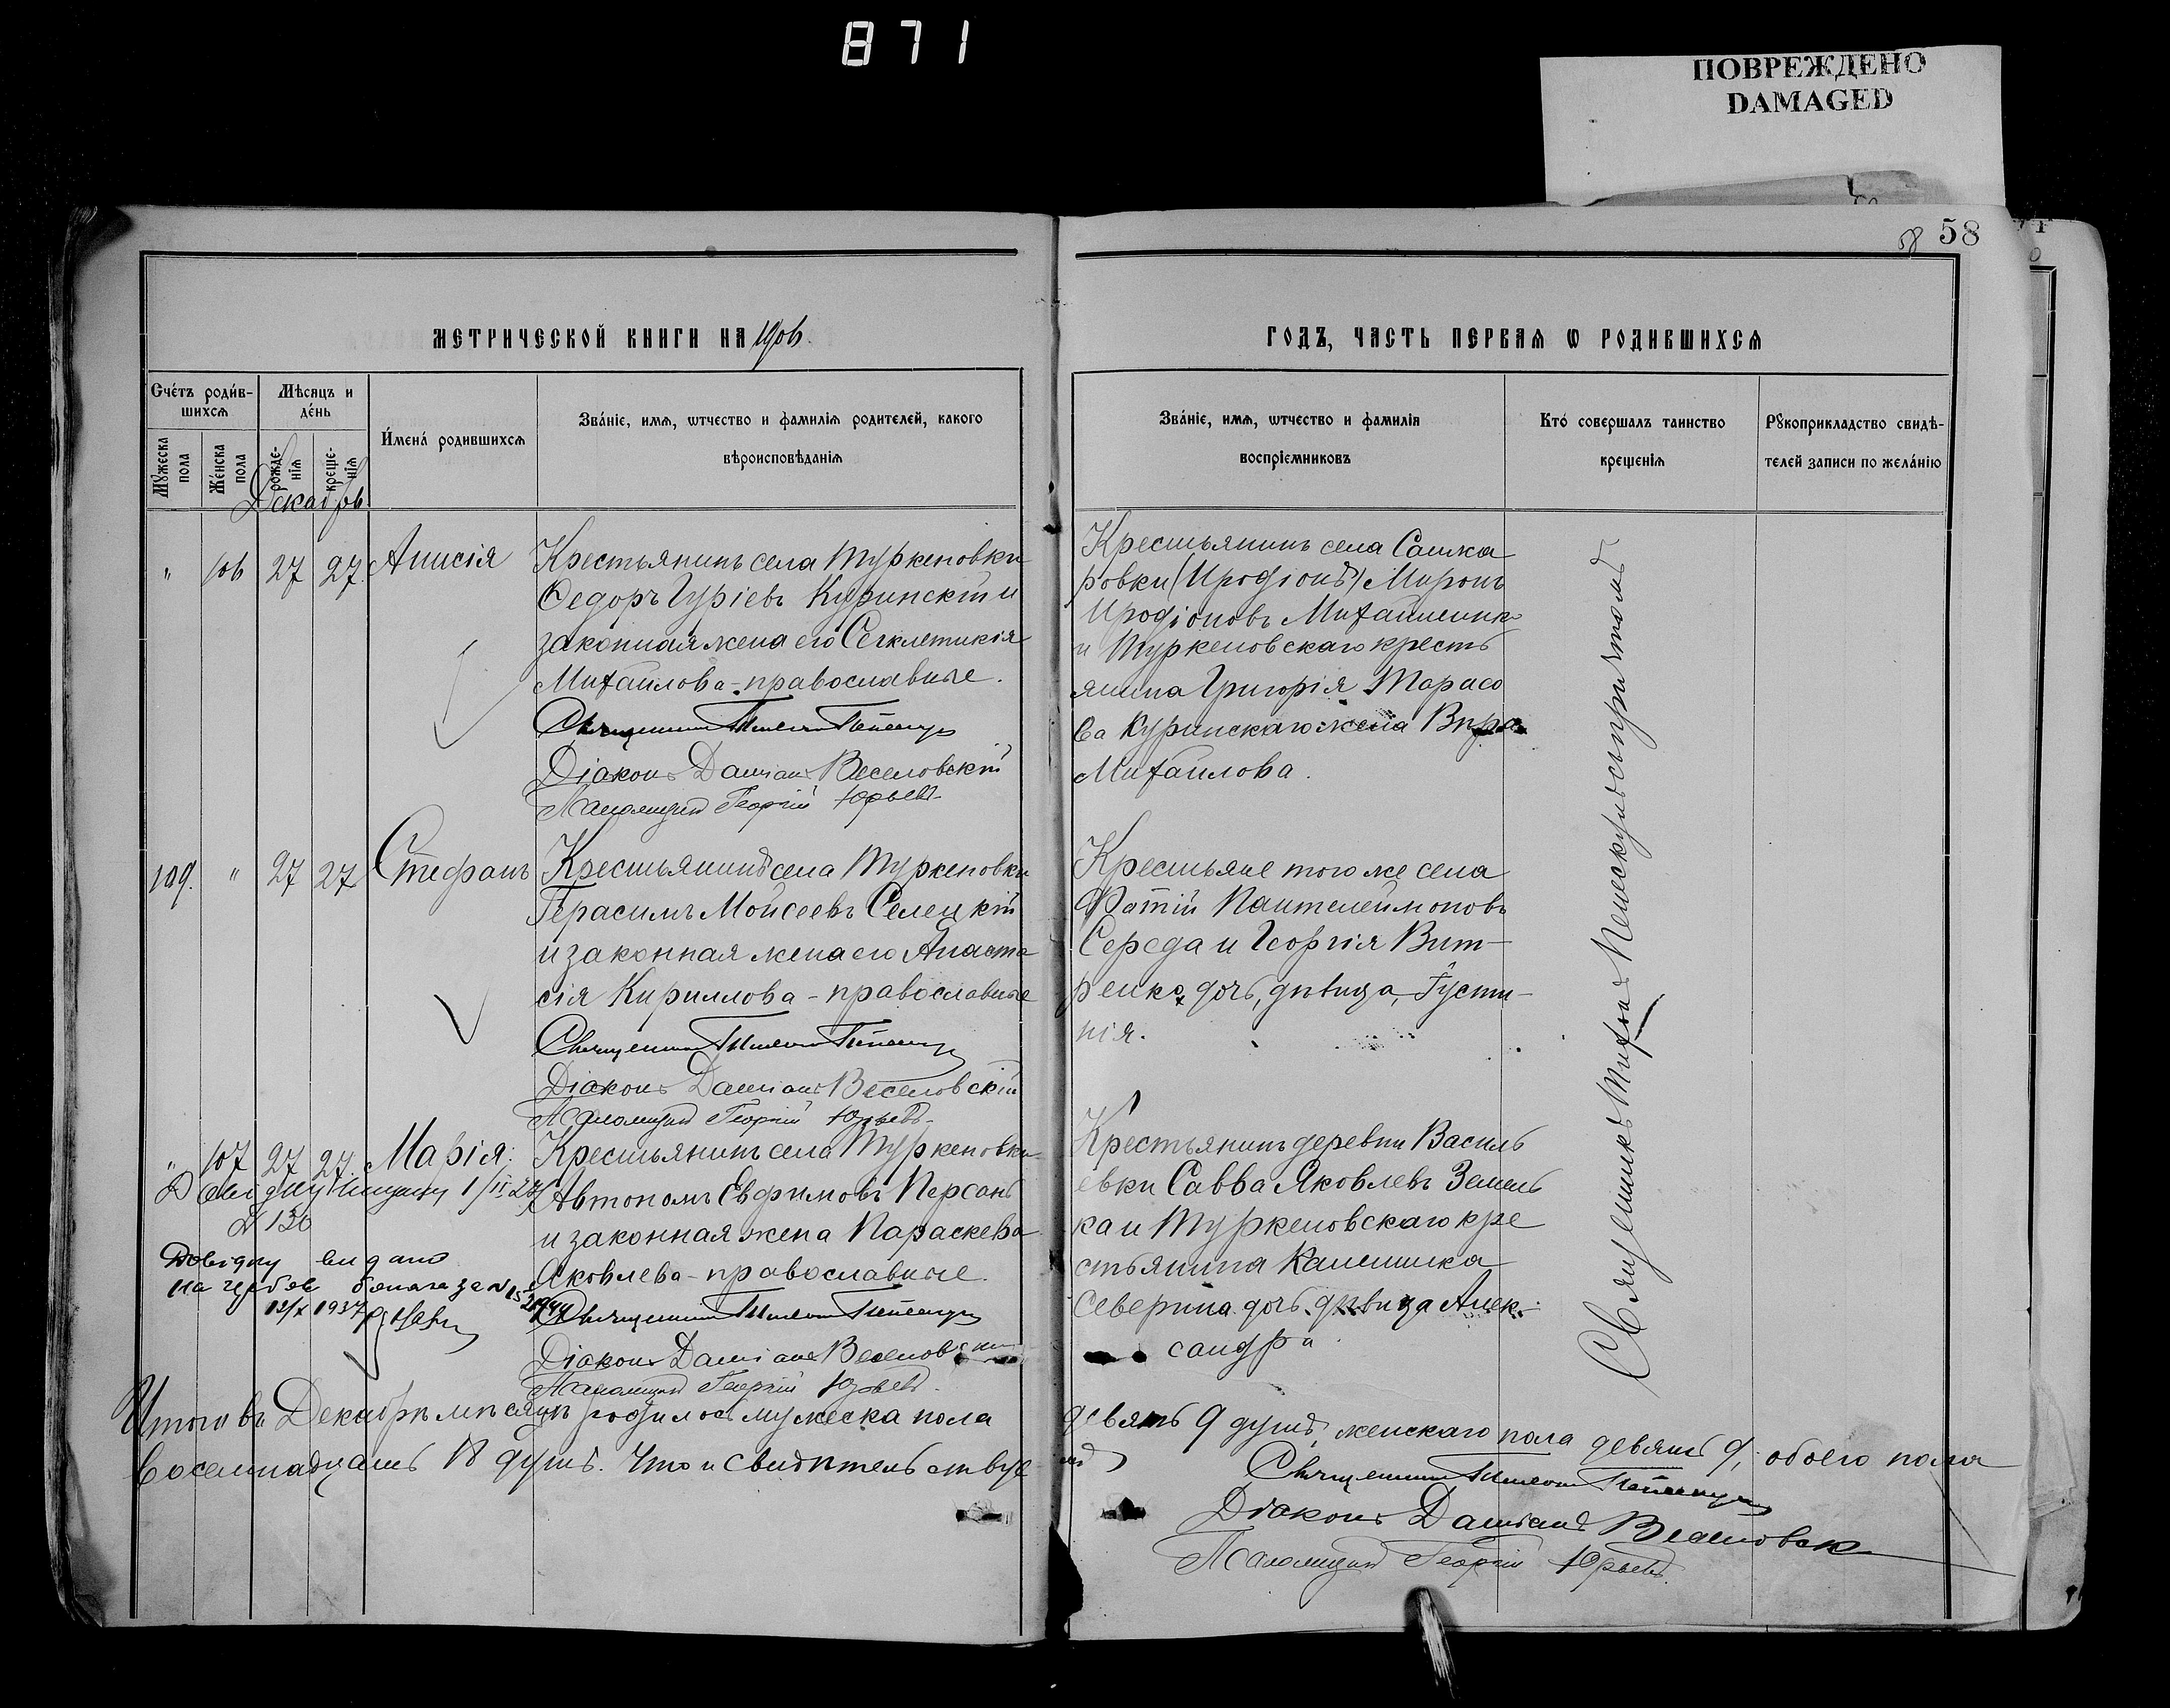 871
ПОВРЕЖДЕНО
DAMAGED
58
58
МЕТРИЧЕСКОЙ КНИГИ НА 1906
ГОДЪ, ЧАСТЬ ПЕРВАѦ Ѡ РОДИВШИХСѦ
Счéтъ родúв-
шихсѧ
Мꙋжеска пола
Жéнска пола
Мѣсяцъ и
дéнь
рожде-
нія
креще-
нія
И́менá родившихсѧ
Звáніе, имѧ, ѡтчество и фамиліѧ родителей, какого
вѣроисповѣданіѧ
Звáніе, имѧ, ѡтчество и фамилія
воспріемниковъ
Ктó совершалъ таинство
крещеніѧ
Рꙋкоприкладство свидѣ-
телей записи по желáнію
Декабрь
" 106 27 27. Анисія
Крестьянинъ села Туркеновки
Ѳедоръ Гуріевъ Куринскій и
законная жена его Секлетикія
Михайлова - православные.
Священникъ
Діаконъ Даміанъ Веселовскій
Псаломщикъ Георгій Юрьевъ
Крестьянинъ села Сашка
ровки (Иродіонъ) Миронъ
Иродіоновъ Михайленко
и Туркеновскаго кресть
янина Григорія Тарасо
ва Куринскаго жена Вѣра
Михайлова.
109. " 27 27 Стефанъ
Крестьянинъ села Туркеновки
Герасимъ Моисеевъ Селецкій
и законная жена его Анаста
сія Кириллова - православные
Священникъ
Діаконъ Даміанъ Веселовскій
Псаломщикъ Георгій Юрьевъ
Крестьяне того же села
Фотій Пантелеймоновъ
Середа и Георгія Вит-
ренко дочь, дѣвица, Густи-
нія.
" 107 27 27. Марія:
Крестьянинъ села Туркеновки
Автономъ Евфимовъ Персанъ
и законная жена Параскева
Яковлева - православные.
Священникъ
Діаконъ Даміанъ Веселовскій
Псаломщикъ Георгій Юрьевъ
Крестьянинъ деревни Василь
евки Савва Яковлевъ Земель
ка и Туркеновскаго кре
стьянина Каленика
Северина дочь дѣвица Алек-
сандра
№ 130
Довідку видано
12/X 1937
Священникъ
Итого въ Декабрѣ мѣсяцѣ родилось мужеска пола
девять 9 душъ, женскаго пола девять 9, обоего пола
восемнадцать 18 душъ. Что и свидѣтельствуе
мъ
Священникъ
Діаконъ Даміанъ Веселовск
Псаломщикъ Георгій Юрьевъ.